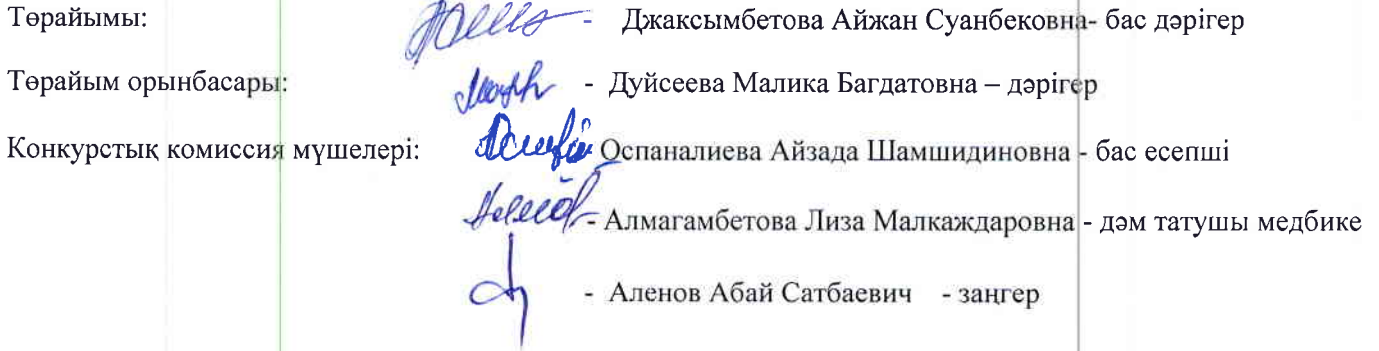 Төрайымы: - Джаксымбетова Айжан Суанбековна- бас дәрігер
Төрайым орынбасары: - Дуйсеева Малика Багдатовна – дәрігер
Конкурстық комиссия мүшелері: Оспаналиева Айзада Шамшидиновна - бас есепші
- Алмагамбетова Лиза Малкаждаровна - дәм татушы медбике
- Аленов Абай Сатбаевич - заңгер